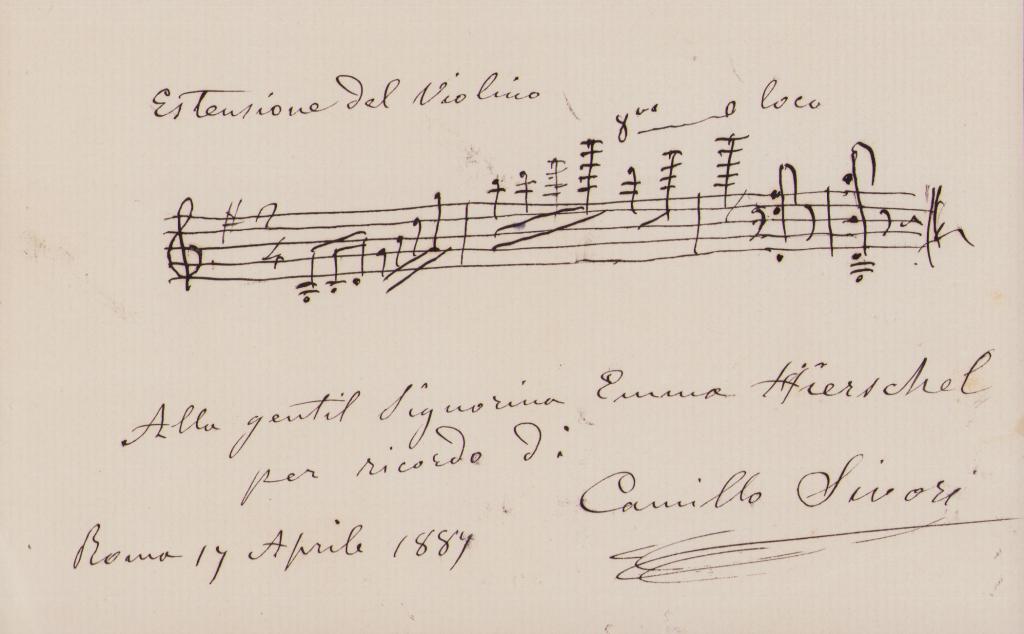 Estensione del Violino
8va loco
2
4
Alla gentil Signorina Emma Hierschel
per ricordo di
Camillo Sivori
Roma 17 Aprile 1887